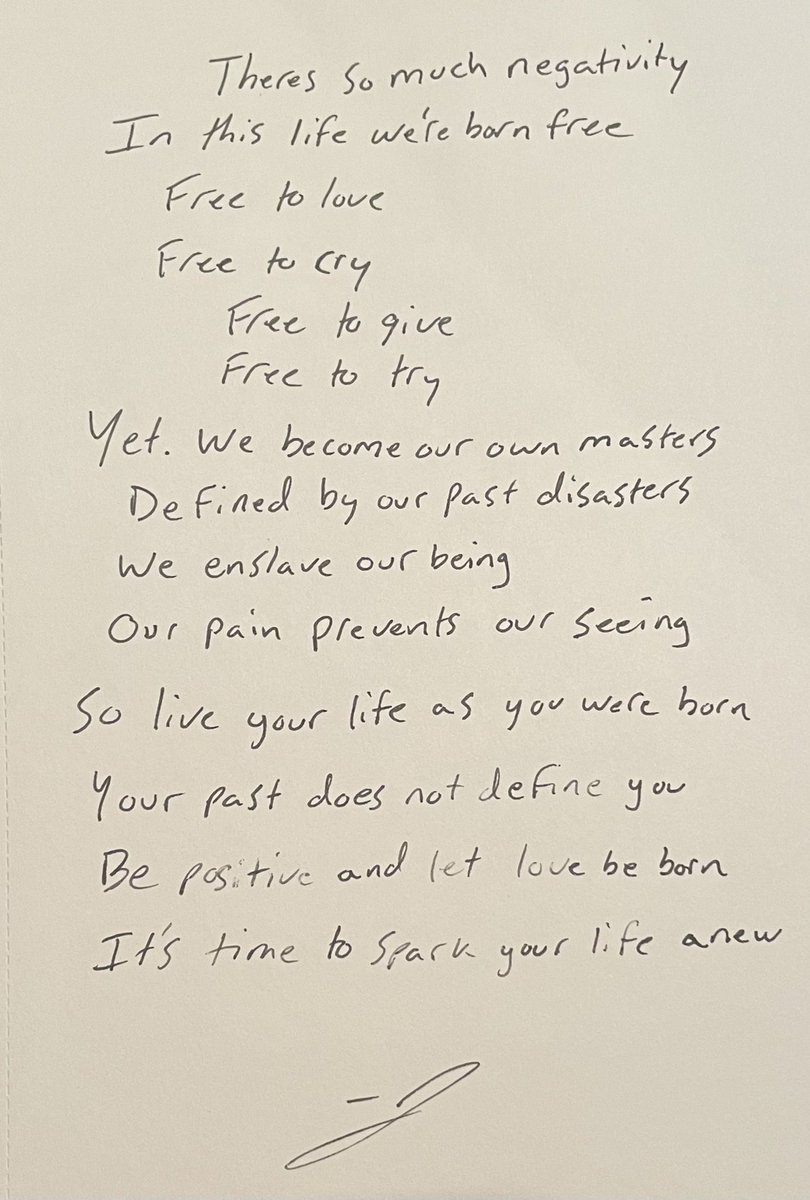 Theres so much negativity
In this life we're born free
Free to love
Free to cry
Free to give
Free to try
Yet. We become our own masters
Defined by our past disasters
We enslave our being
Our pain prevents our seeing
So live your life as you were born
Your past does not define you
Be positive and let love be born
It's time to spark your life anew